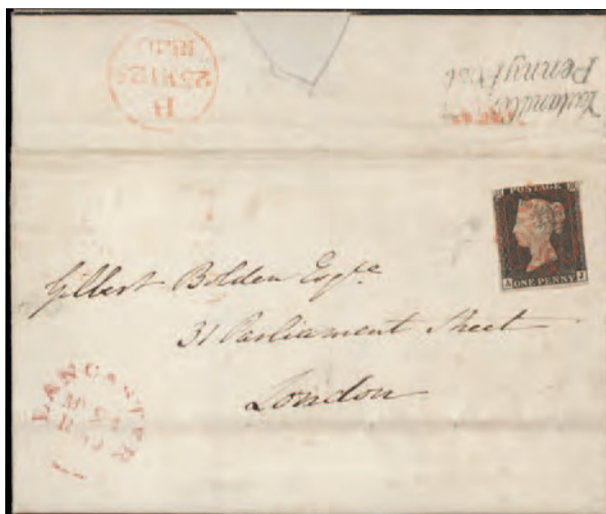 1840
Penny Post
POSTAGE
A ONE PENNY J
Gilbert Bolden Esqre
31 Parliament Street
London
LANCASTER